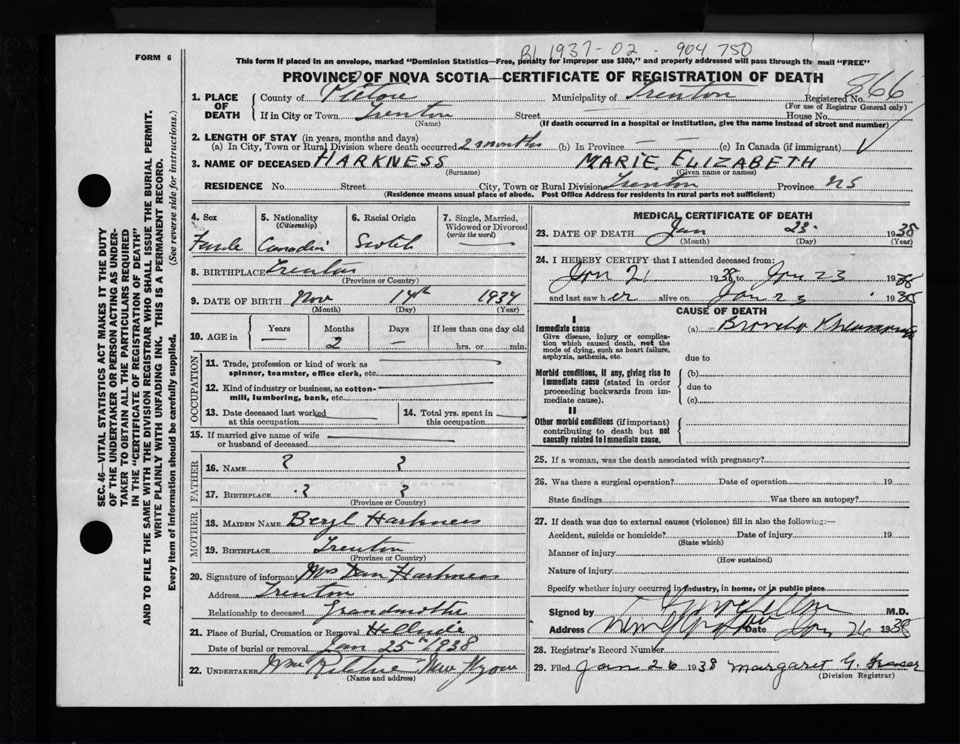 FORM 6
BL 1937-02-904750
This form if placed in an envelope, marked "Dominion Statistics—Free, penalty for improper use $300," and properly addressed will pass through the mail "FREE"
PROVINCE OF NOVA SCOTIA—CERTIFICATE OF REGISTRATION OF DEATH
1. PLACE OF DEATH County of Pictou Municipality of Trenton Registered No. 866
(For use of Registrar General only)
If in City or Town Trenton Street House No.
(Name) (If death occurred in a hospital or institution, give the name instead of street and number)
2. LENGTH OF STAY (in years, months and days)
(a) In City, Town or Rural Division where death occurred 2 months (b) In Province — (c) In Canada (if immigrant)
3. NAME OF DECEASED HARKNESS MARIE ELIZABETH
(Surname) (Given name or names)
RESIDENCE No. Street City, Town or Rural Division Trenton Province NS
(Residence means usual place of abode. Post Office Address for residents in rural parts not sufficient)
4. Sex 5. Nationality (Citizenship) 6. Racial Origin 7. Single, Married, Widowed or Divorced (write the word)
Female Canadian Scotch —
8. BIRTHPLACE Trenton
(Province or Country)
9. DATE OF BIRTH Nov 14th 1937
(Month) (Day) (Year)
10. AGE in Years Months Days If less than one day old
— 2 — hrs. or min.
OCCUPATION
11. Trade, profession or kind of work as spinner, teamster, office clerk, etc.
12. Kind of industry or business, as cotton-mill, lumbering, bank, etc.
13. Date deceased last worked at this occupation 14. Total yrs. spent in this occupation
15. If married give name of wife or husband of deceased
FATHER
16. NAME ? ?
17. BIRTHPLACE ? ?
(Province or Country)
MOTHER
18. MAIDEN NAME Beryl Harkness
19. BIRTHPLACE Trenton
(Province or Country)
20. Signature of informant Mrs Dan Harkness
Address Trenton
Relationship to deceased Grandmother
21. Place of Burial, Cremation or Removal
Date of burial or removal Jan 25th 1938
22. UNDERTAKER Wm Ritchie New Glasgow
(Name and address)
MEDICAL CERTIFICATE OF DEATH
23. DATE OF DEATH Jan 23 1938
(Month) (Day) (Year)
24. I HEREBY CERTIFY that I attended deceased from:
Jan 21 1938 to Jan 23 1938
and last saw her alive on Jan 23 1938
CAUSE OF DEATH
I
Immediate cause (a) Broncho Pneumonia
Give disease, injury or complication which caused death, not the mode of dying, such as heart failure, asphyxia, asthenia, etc.
due to
Morbid conditions, if any, giving rise to immediate cause (stated in order proceeding backwards from immediate cause). (b)
due to
(c)
II
Other morbid conditions (if important) contributing to death but not causally related to immediate cause.
25. If a woman, was the death associated with pregnancy?
26. Was there a surgical operation? Date of operation 19
State findings Was there an autopsy?
27. If death was due to external causes (violence) fill in also the following:—
Accident, suicide or homicide? Date of injury 19
(State which)
Manner of injury
(How sustained)
Nature of injury
Specify whether injury occurred in industry, in home, or in public place
Signed by M.D.
Address New Glasgow Date Jan 26 1938
28. Registrar's Record Number
29. Filed Jan 26 1938 Margaret G. Fraser
(Division Registrar)
SEC. 46—VITAL STATISTICS ACT MAKES IT THE DUTY
OF THE UNDERTAKER OR PERSON ACTING AS UNDERTAKER TO OBTAIN ALL THE PARTICULARS REQUIRED
IN THE "CERTIFICATE OF REGISTRATION OF DEATH"
AND TO FILE THE SAME WITH THE DIVISION REGISTRAR WHO SHALL ISSUE THE BURIAL PERMIT.
WRITE PLAINLY WITH UNFADING INK. THIS IS A PERMANENT RECORD.
Every item of information should be carefully supplied. (See reverse side for instructions.)